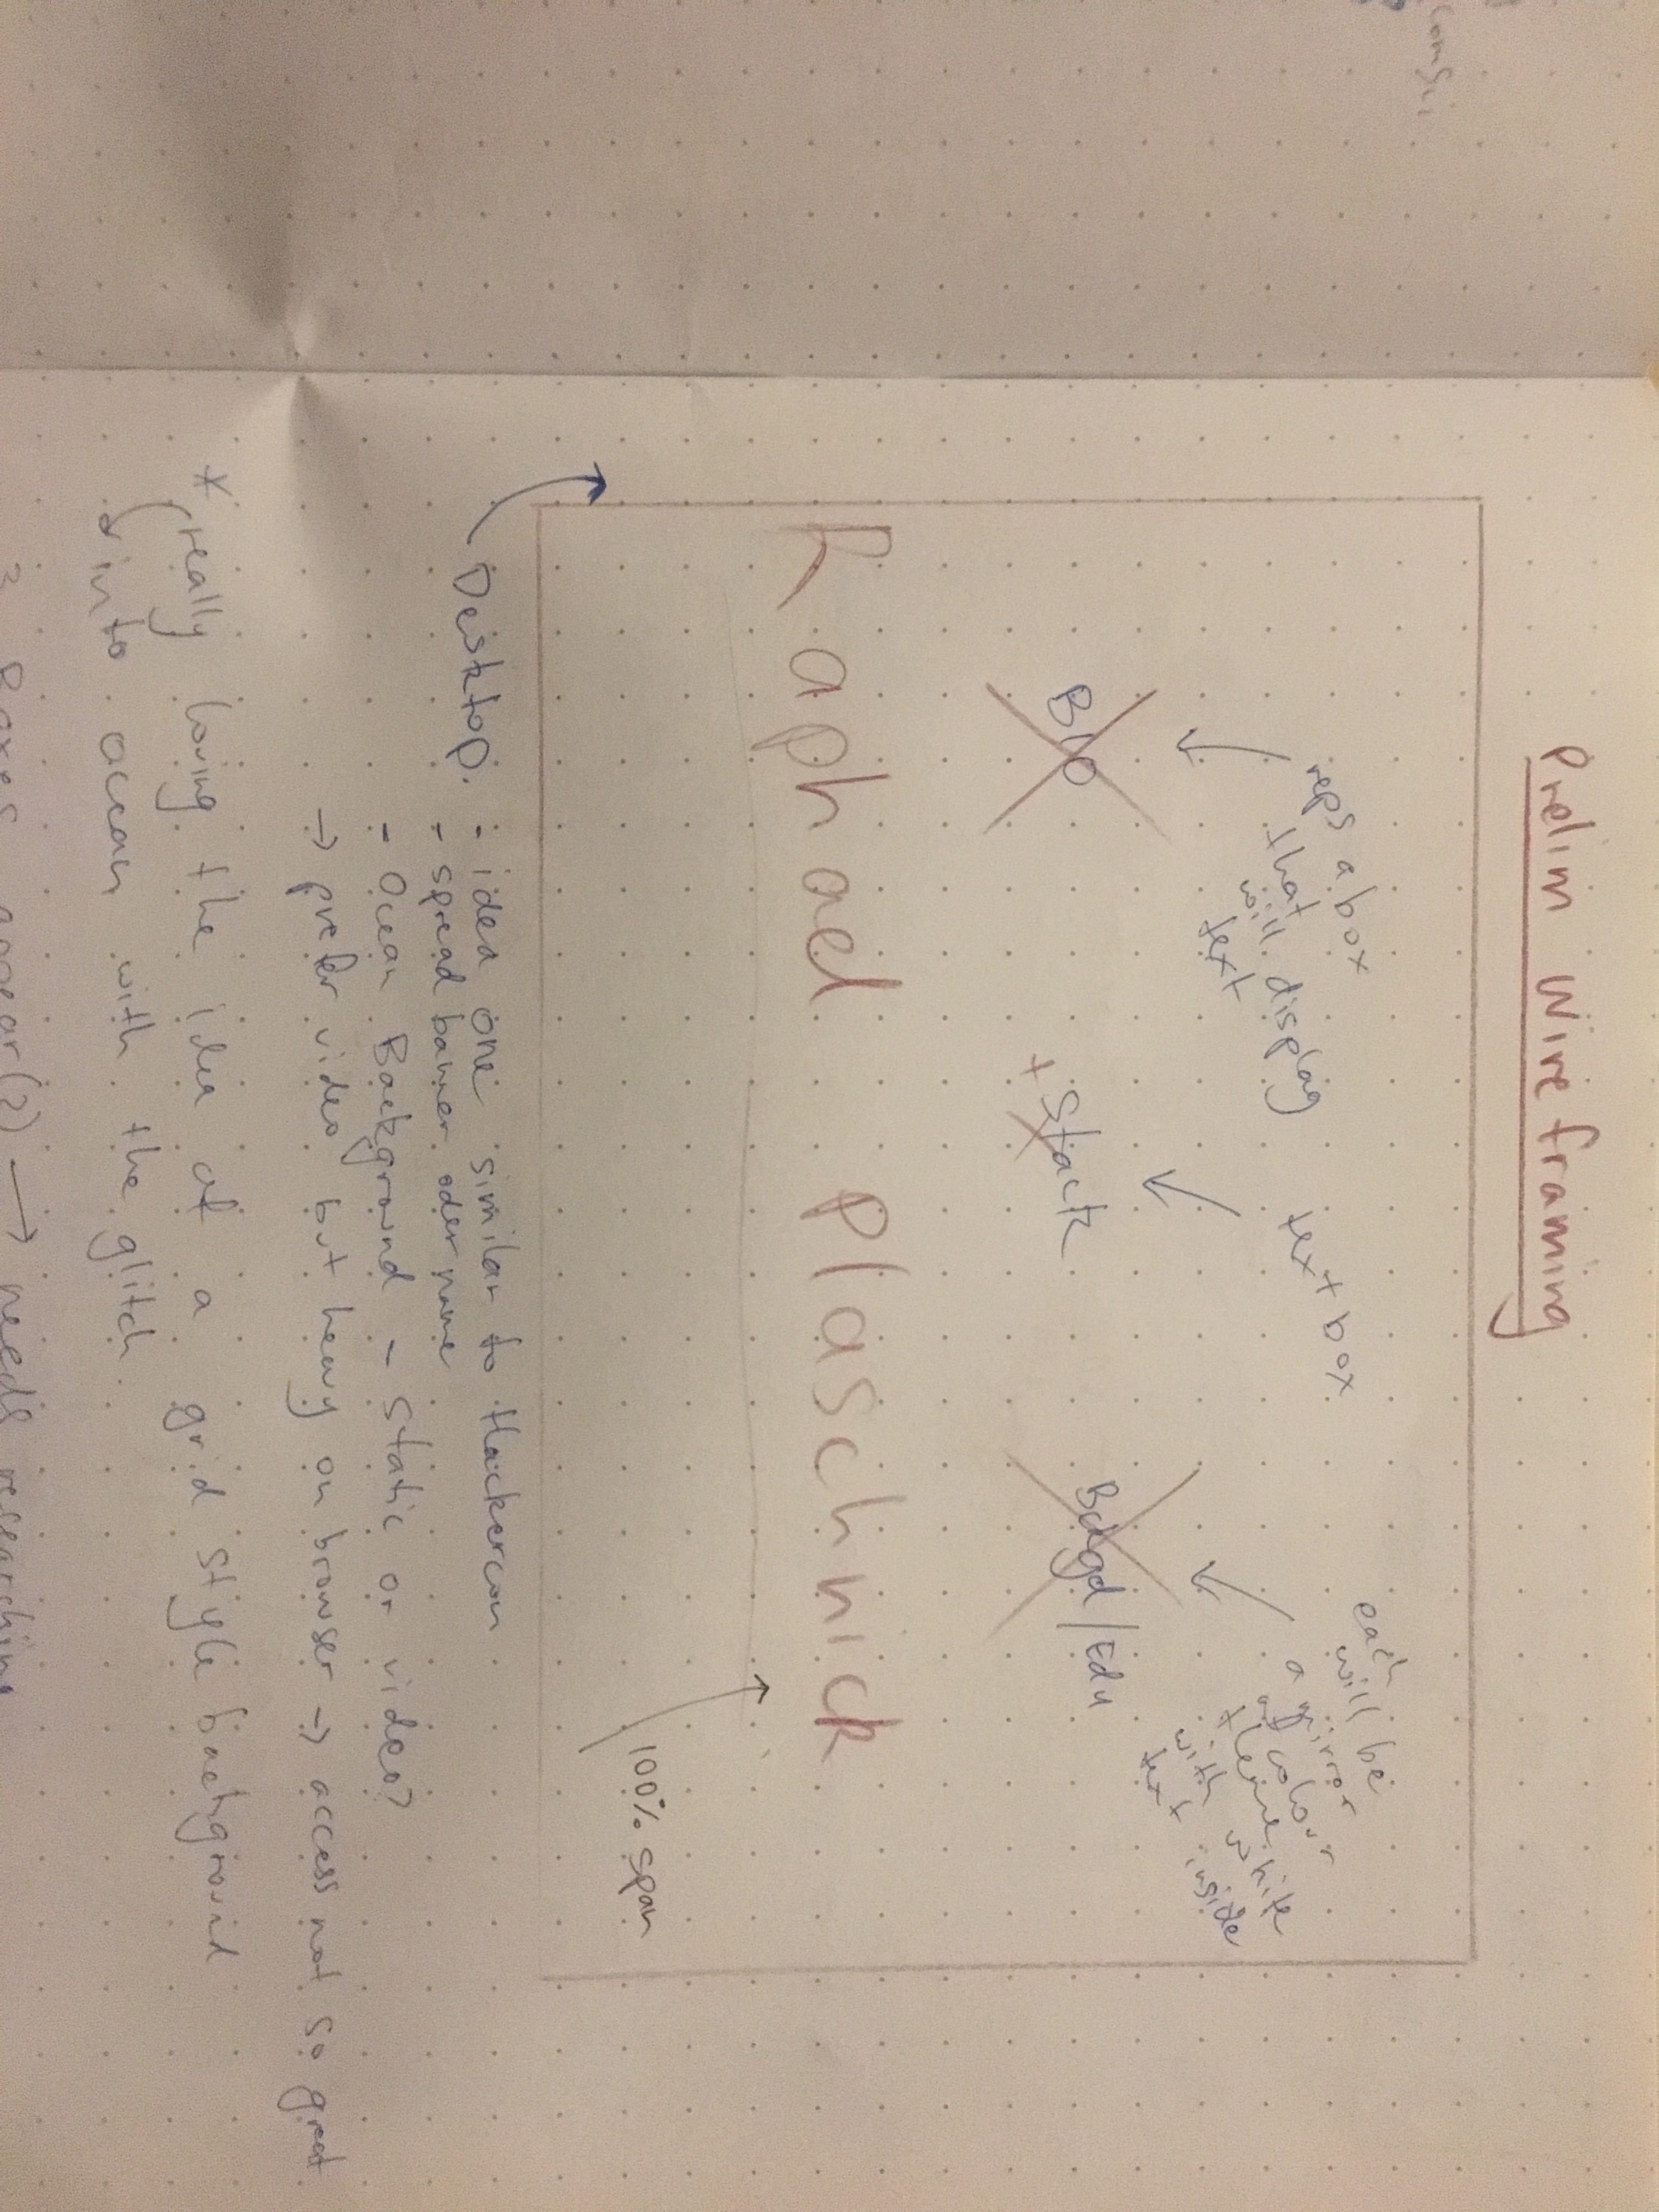 ComSci.
Prelim Wireframing
reps a box
that
will display
text
text box
each
will be
a mirror
of colour
theme
with white
text inside
BIO
+ Stack
Bckgd / Edu
Raphael Plaschnick
100% span
Desktop. - idea one similar to Hackercon
- spread banner oder name
- Ocean Background - static or video?
→ prefer video but heavy on browser → access not so great
* really loving the idea of a grid style background
into ocean with the glitch.
3 Boxes appear(?) → needs researching